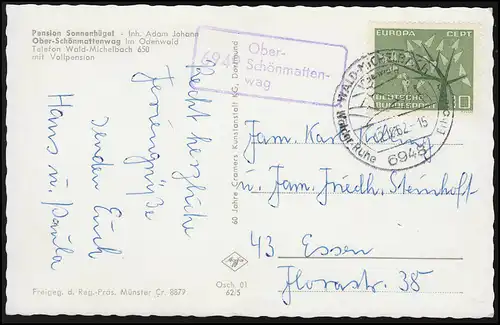 Pension Sonnerhügel · Inh. Adam Johann
Ober-Schönmattenwag im Odenwald
Telefon Wald-Michelbach 650
mit Vollpension
Recht herzliche
Feriengrüße
senden Euch
Hans u. Paula
Freigeg. d. Reg.-Präs. Münster Cr. 8877
60 Jahre Cramers Kunstanstalt KG, Dortmund
Qsch. 01
62/5
694
Ober-
Schönmatten-
wag
EUROPA CEPT
DEUTSCHE
BUNDESPOST
10
WALD-MICHELBACH
62-15
6948
Fam. Karl
u. Fam. Friedh. Steinhoff
43 Essen
Florastr. 38